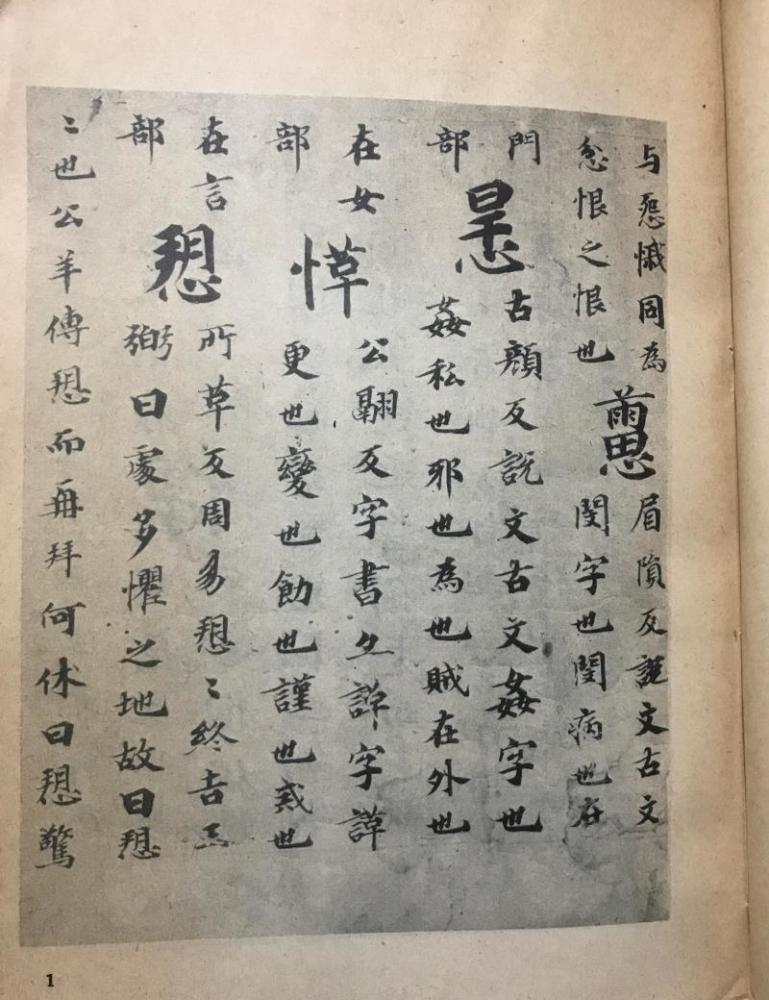 与慽同為
忿恨之恨也
眉隕反說文古文
閔字也閔病也在
門
部
𢙶
古顏反說文古文姦字也
姦私也邪也為也賊在外也
在女
部
愅
公翮反字書亦諽字諽
更也變也飭也謹也戒也
在言
部
愬
所草反周易愬〻終吉王
弼曰處多懼之地故曰愬
〻也公羊傳愬而再拜何休曰愬驚
1